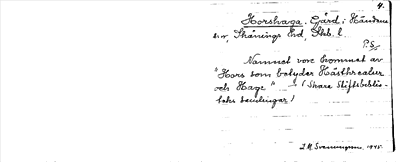 4.
Horshaga. Gård i Händene
s:n, Skånings hd, Skb. l.
P.S.
Namnet vore kommet av
"Hors som betyder Hästkreatur
och Hage" — (Skara Stiftsbiblio-
teks samlingar)
J M Svenningson, 1945.